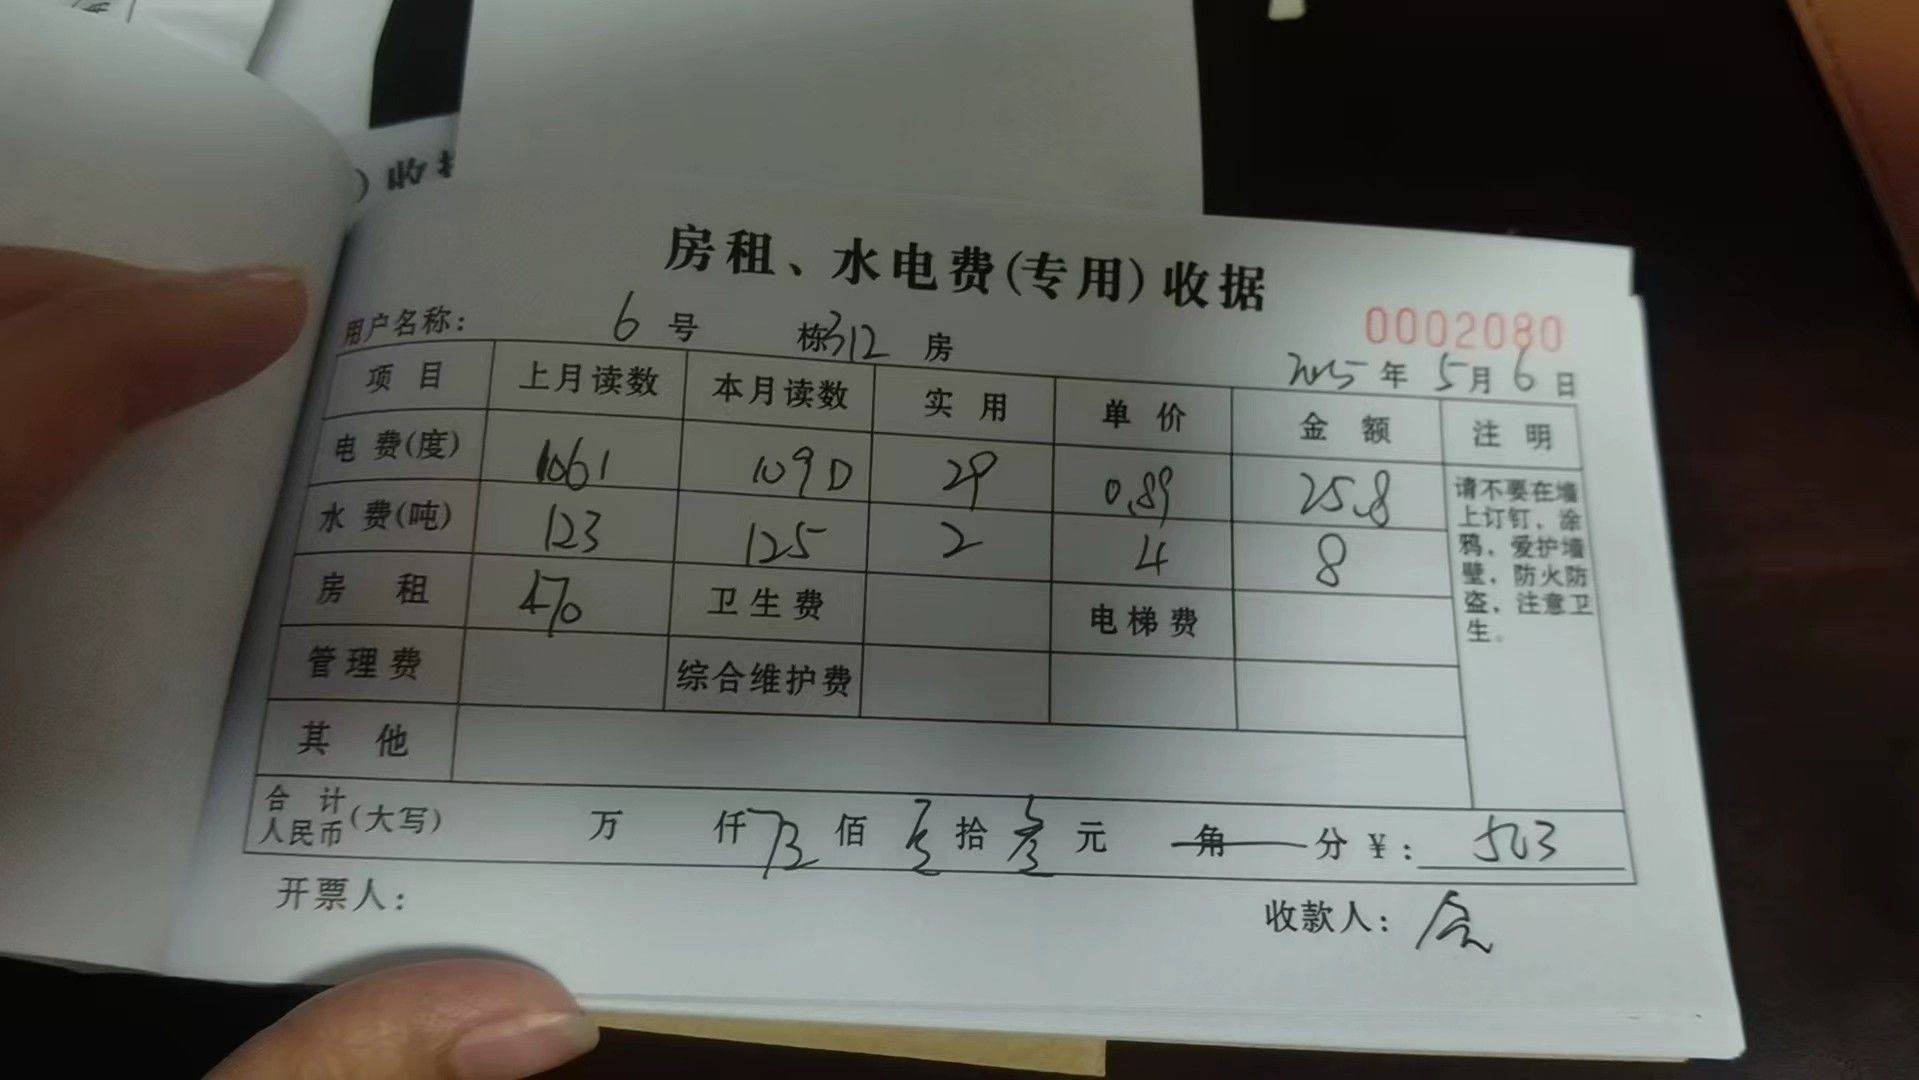 ）收据
房租、水电费(专用)收据
0002080
用户名称： 6 号 栋312 房
2025 年 5 月 6 日
项 目 上月读数 本月读数 实 用 单 价 金 额 注 明
电 费(度) 1061 1090 29 0.89 25.8
水 费(吨) 123 125 2 4 8
房 租 470 卫生费 电梯费
管理费 综合维护费
其 他
请不要在墙
上订钉，涂
鸦，爱护墙
壁，防火防
盗，注意卫
生。
合 计
人民币 (大写) 万 仟 佰 拾 元 角 分 ¥： 503
开票人：
收款人：